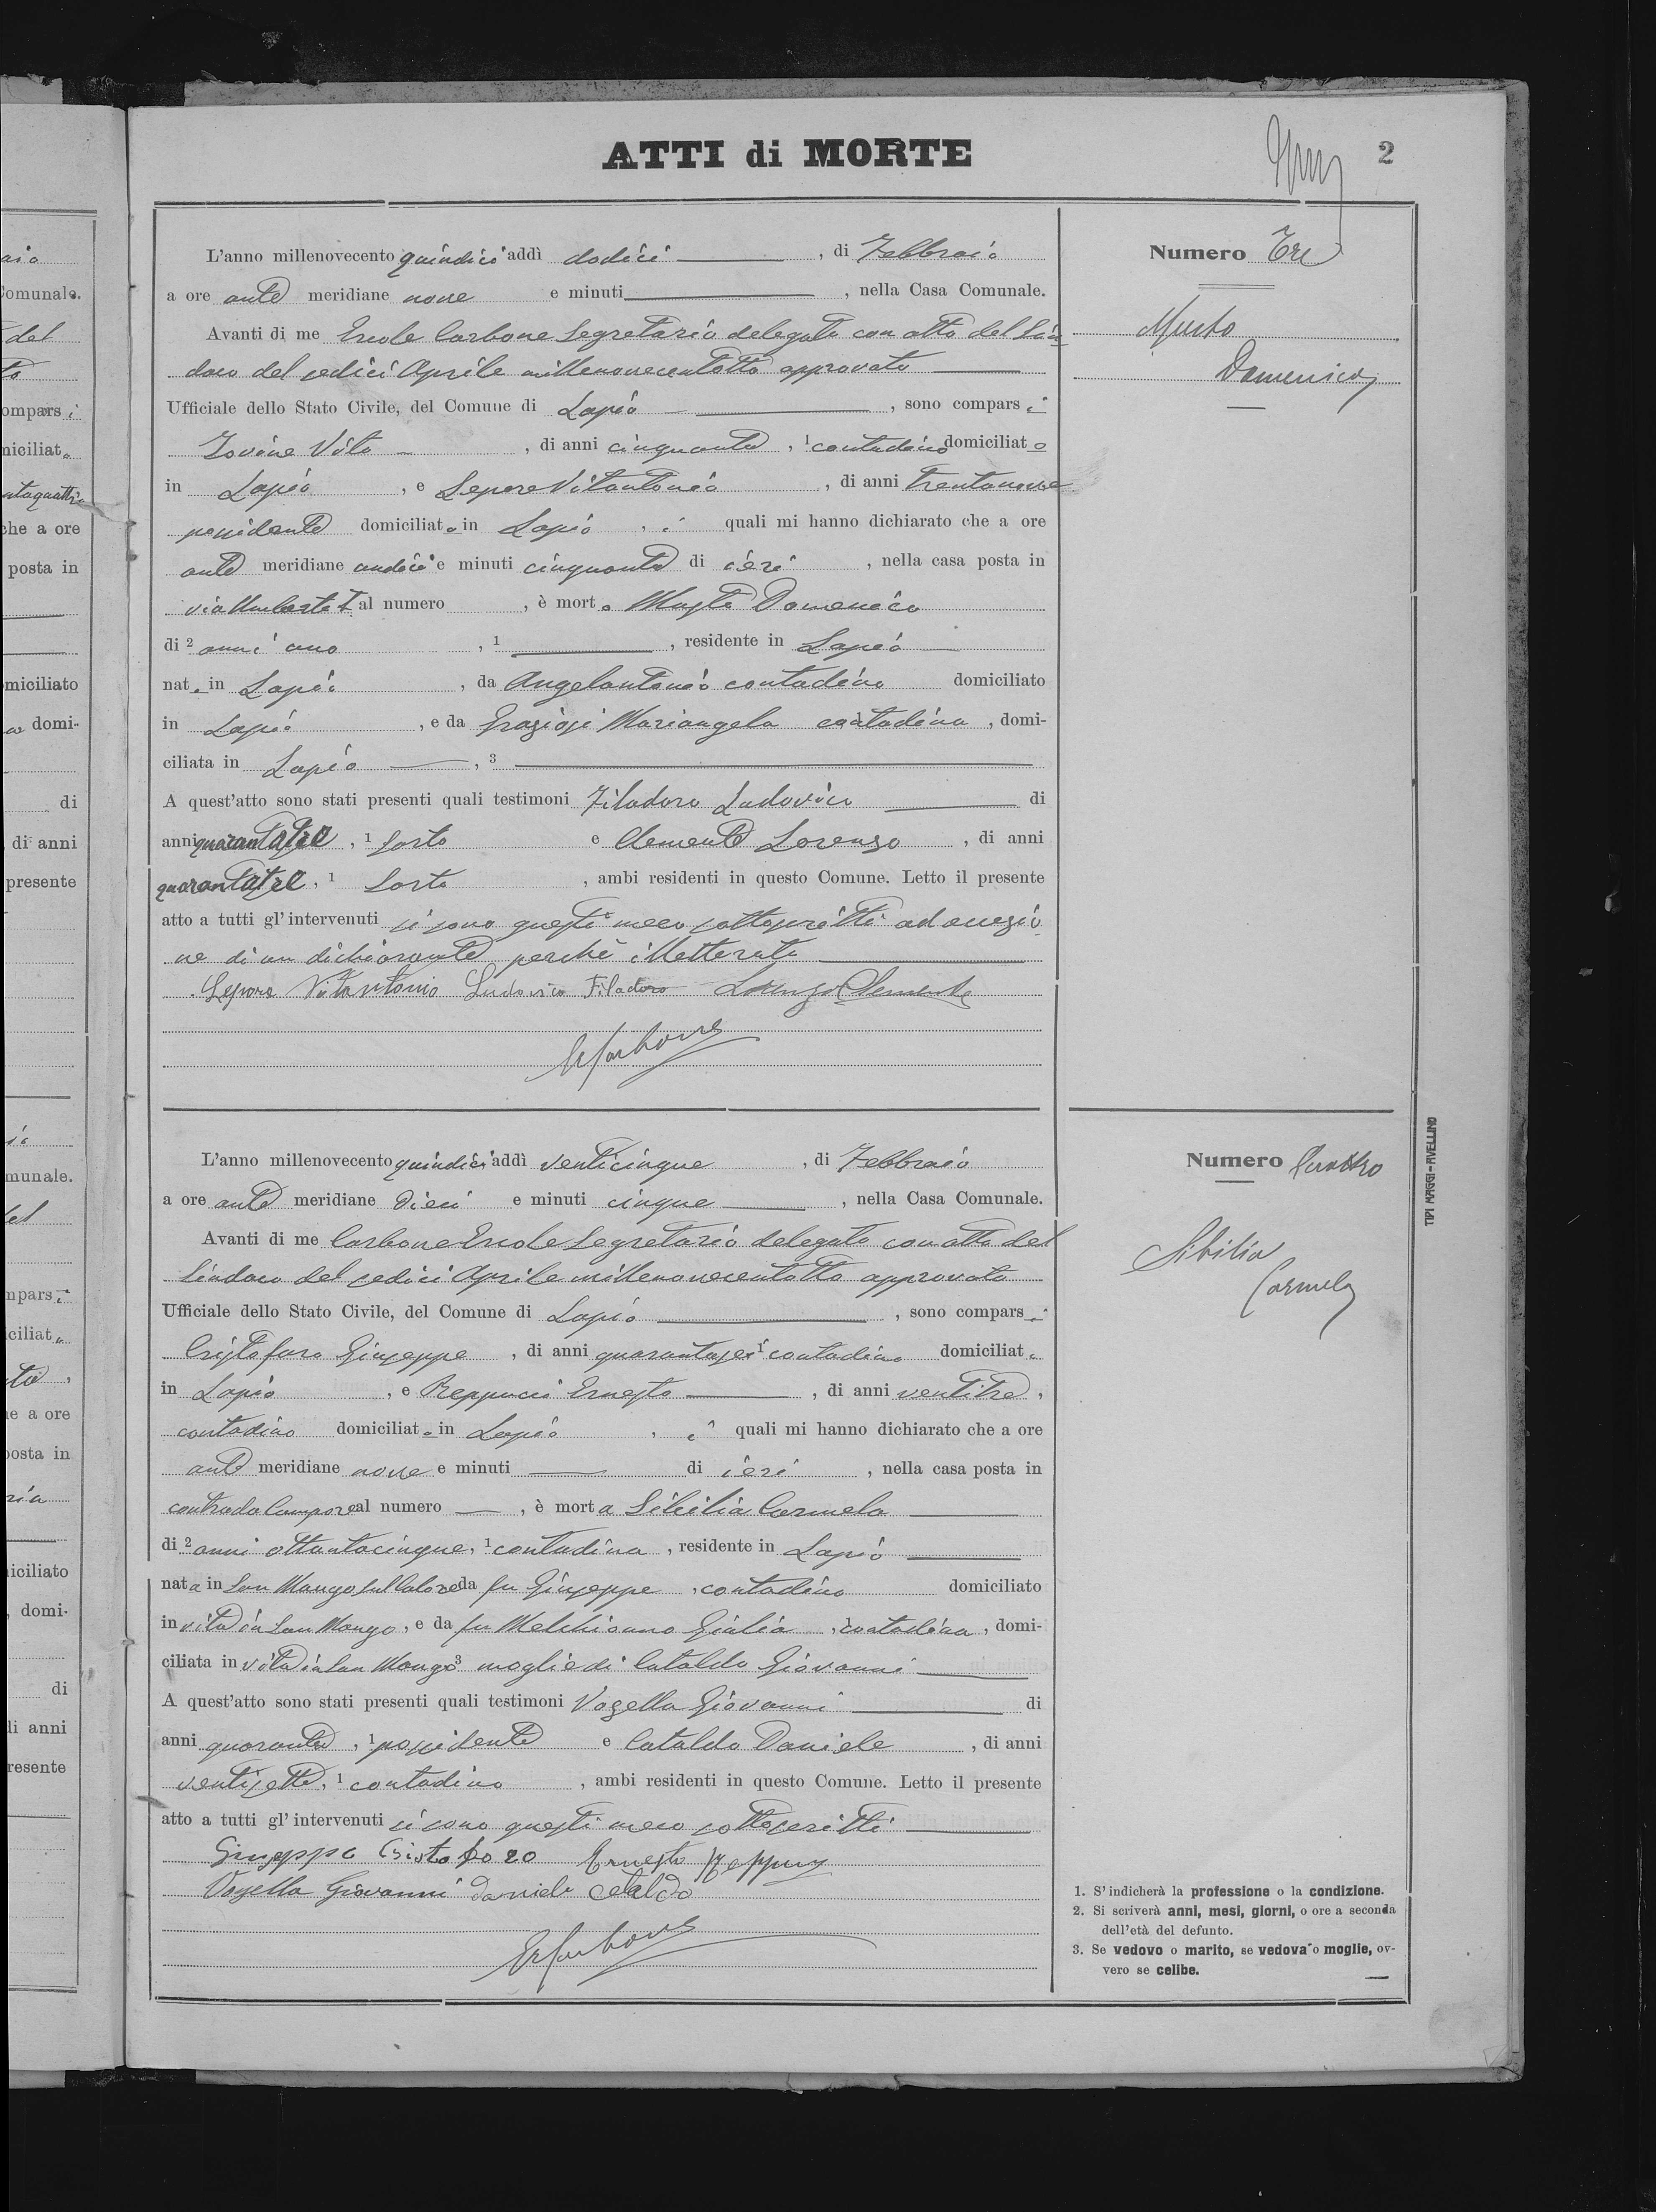 ATTI di MORTE
2
L'anno millenovecento quindici addì dodici, di Febbraio
a ore ante meridiane nove e minuti, nella Casa Comunale.
Avanti di me Ercole Carbone Segretario delegato con atto del Sin
daco del sedici Aprile millenovecentotto approvato
Ufficiale dello Stato Civile, del Comune di Lapio, sono comparsi
Iovine Vito, di anni cinquanta, 1 contadino domiciliato
in Lapio, e Lepore Vitantonio, di anni trentanove
possidente domiciliato in Lapio, i quali mi hanno dichiarato che a ore
ante meridiane undici e minuti cinquanta di ieri, nella casa posta in
via Umberto I al numero, è morto Musto Domenico
di 2 anni uno, 1, residente in Lapio
nato in Lapio, da Angelantonio contadino domiciliato
in Lapio, e da Graziosi Mariangela contadina, domi-
ciliata in Lapio, 3
A quest'atto sono stati presenti quali testimoni Filadoro Ludovico di
anni quarantatre, 1 Sarto e Clemente Lorenzo, di anni
quarantatre, 1 Sarto, ambi residenti in questo Comune. Letto il presente
atto a tutti gl'intervenuti si sono questi meco sottoscritti ad eccezio
ne di un dichiarante perchè illetterato
Lepore Vitantonio Ludovico Filadoro Lorenzo Clemente
ECarbone
Numero Tre
Musto
Domenico
L'anno millenovecento quindici addì venticinque, di Febbraio
a ore ante meridiane dieci e minuti cinque, nella Casa Comunale.
Avanti di me Carbone Ercole Segretario delegato con atto del
Sindaco del sedici Aprile millenovecentotto approvato
Ufficiale dello Stato Civile, del Comune di Lapio, sono comparsi
Cristofaro Giuseppe, di anni quarantasei 1 contadino domiciliato
in Lapio, e Reppucci Ernesto, di anni ventitre,
contadino domiciliato in Lapio, i quali mi hanno dichiarato che a ore
ante meridiane nove e minuti di ieri, nella casa posta in
contrada Campore al numero, è morta Sibilia Carmela
di 2 anni ottantacinque, 1 contadina, residente in Lapio
nata in San Mango sul Calore da fu Giuseppe, contadino domiciliato
in vita in San Mango, e da fu Melchionno Giulia, contadina, domi-
ciliata in vita in San Mango 3 moglie di Cataldo Giovanni
A quest'atto sono stati presenti quali testimoni Vozella Giovanni di
anni quaranta, 1 possidente e Cataldo Daniele, di anni
ventisette, 1 contadino, ambi residenti in questo Comune. Letto il presente
atto a tutti gl'intervenuti si sono questi meco sottoscritti
Giuseppe Cristofaro Ernesto Reppucci
Vozella Giovanni Daniele Cataldo
ECarbone
Numero Quattro
Sibilia
Carmela
1. S'indicherà la professione o la condizione.
2. Si scriverà anni, mesi, giorni, o ore a seconda
dell'età del defunto.
3. Se vedovo o marito, se vedova o moglie, ov-
vero se celibe.
TIPI MAGGI - AVELLINO